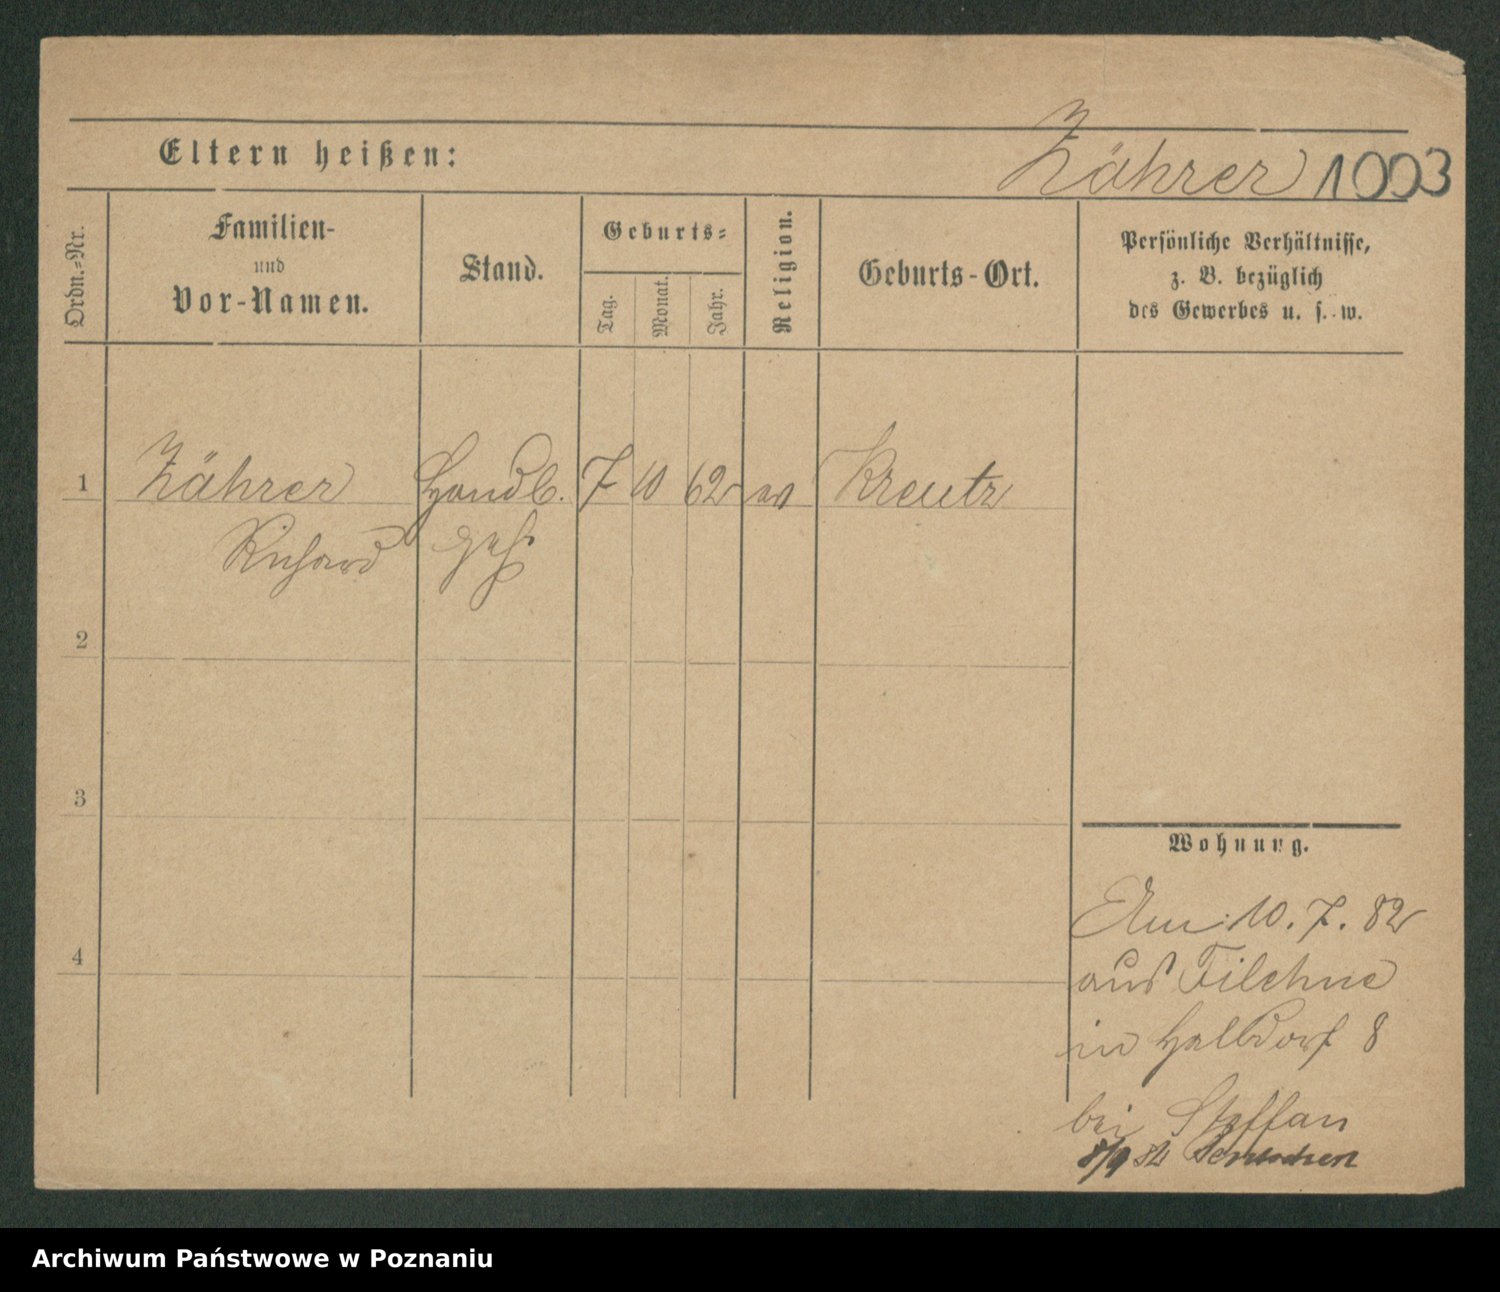 Eltern heißen:
Zährer 1003
Ordn.-Nr.
Familien-
und
Vor-Namen.
Stand.
Geburts-
Tag.
Monat.
Jahr.
Religion.
Geburts-Ort.
Persönliche Verhältnisse,
z. B. bezüglich
des Gewerbes u. s. w.
1 Zährer Handl. 7 10 62 ev Kreutz
Richard geh.
2
3
4
Wohnung.
Am 10. 7. 82
aus Filehne
in Halbdorf 8
bei Steffan
8/9 84 Bentschen
Archiwum Państwowe w Poznaniu